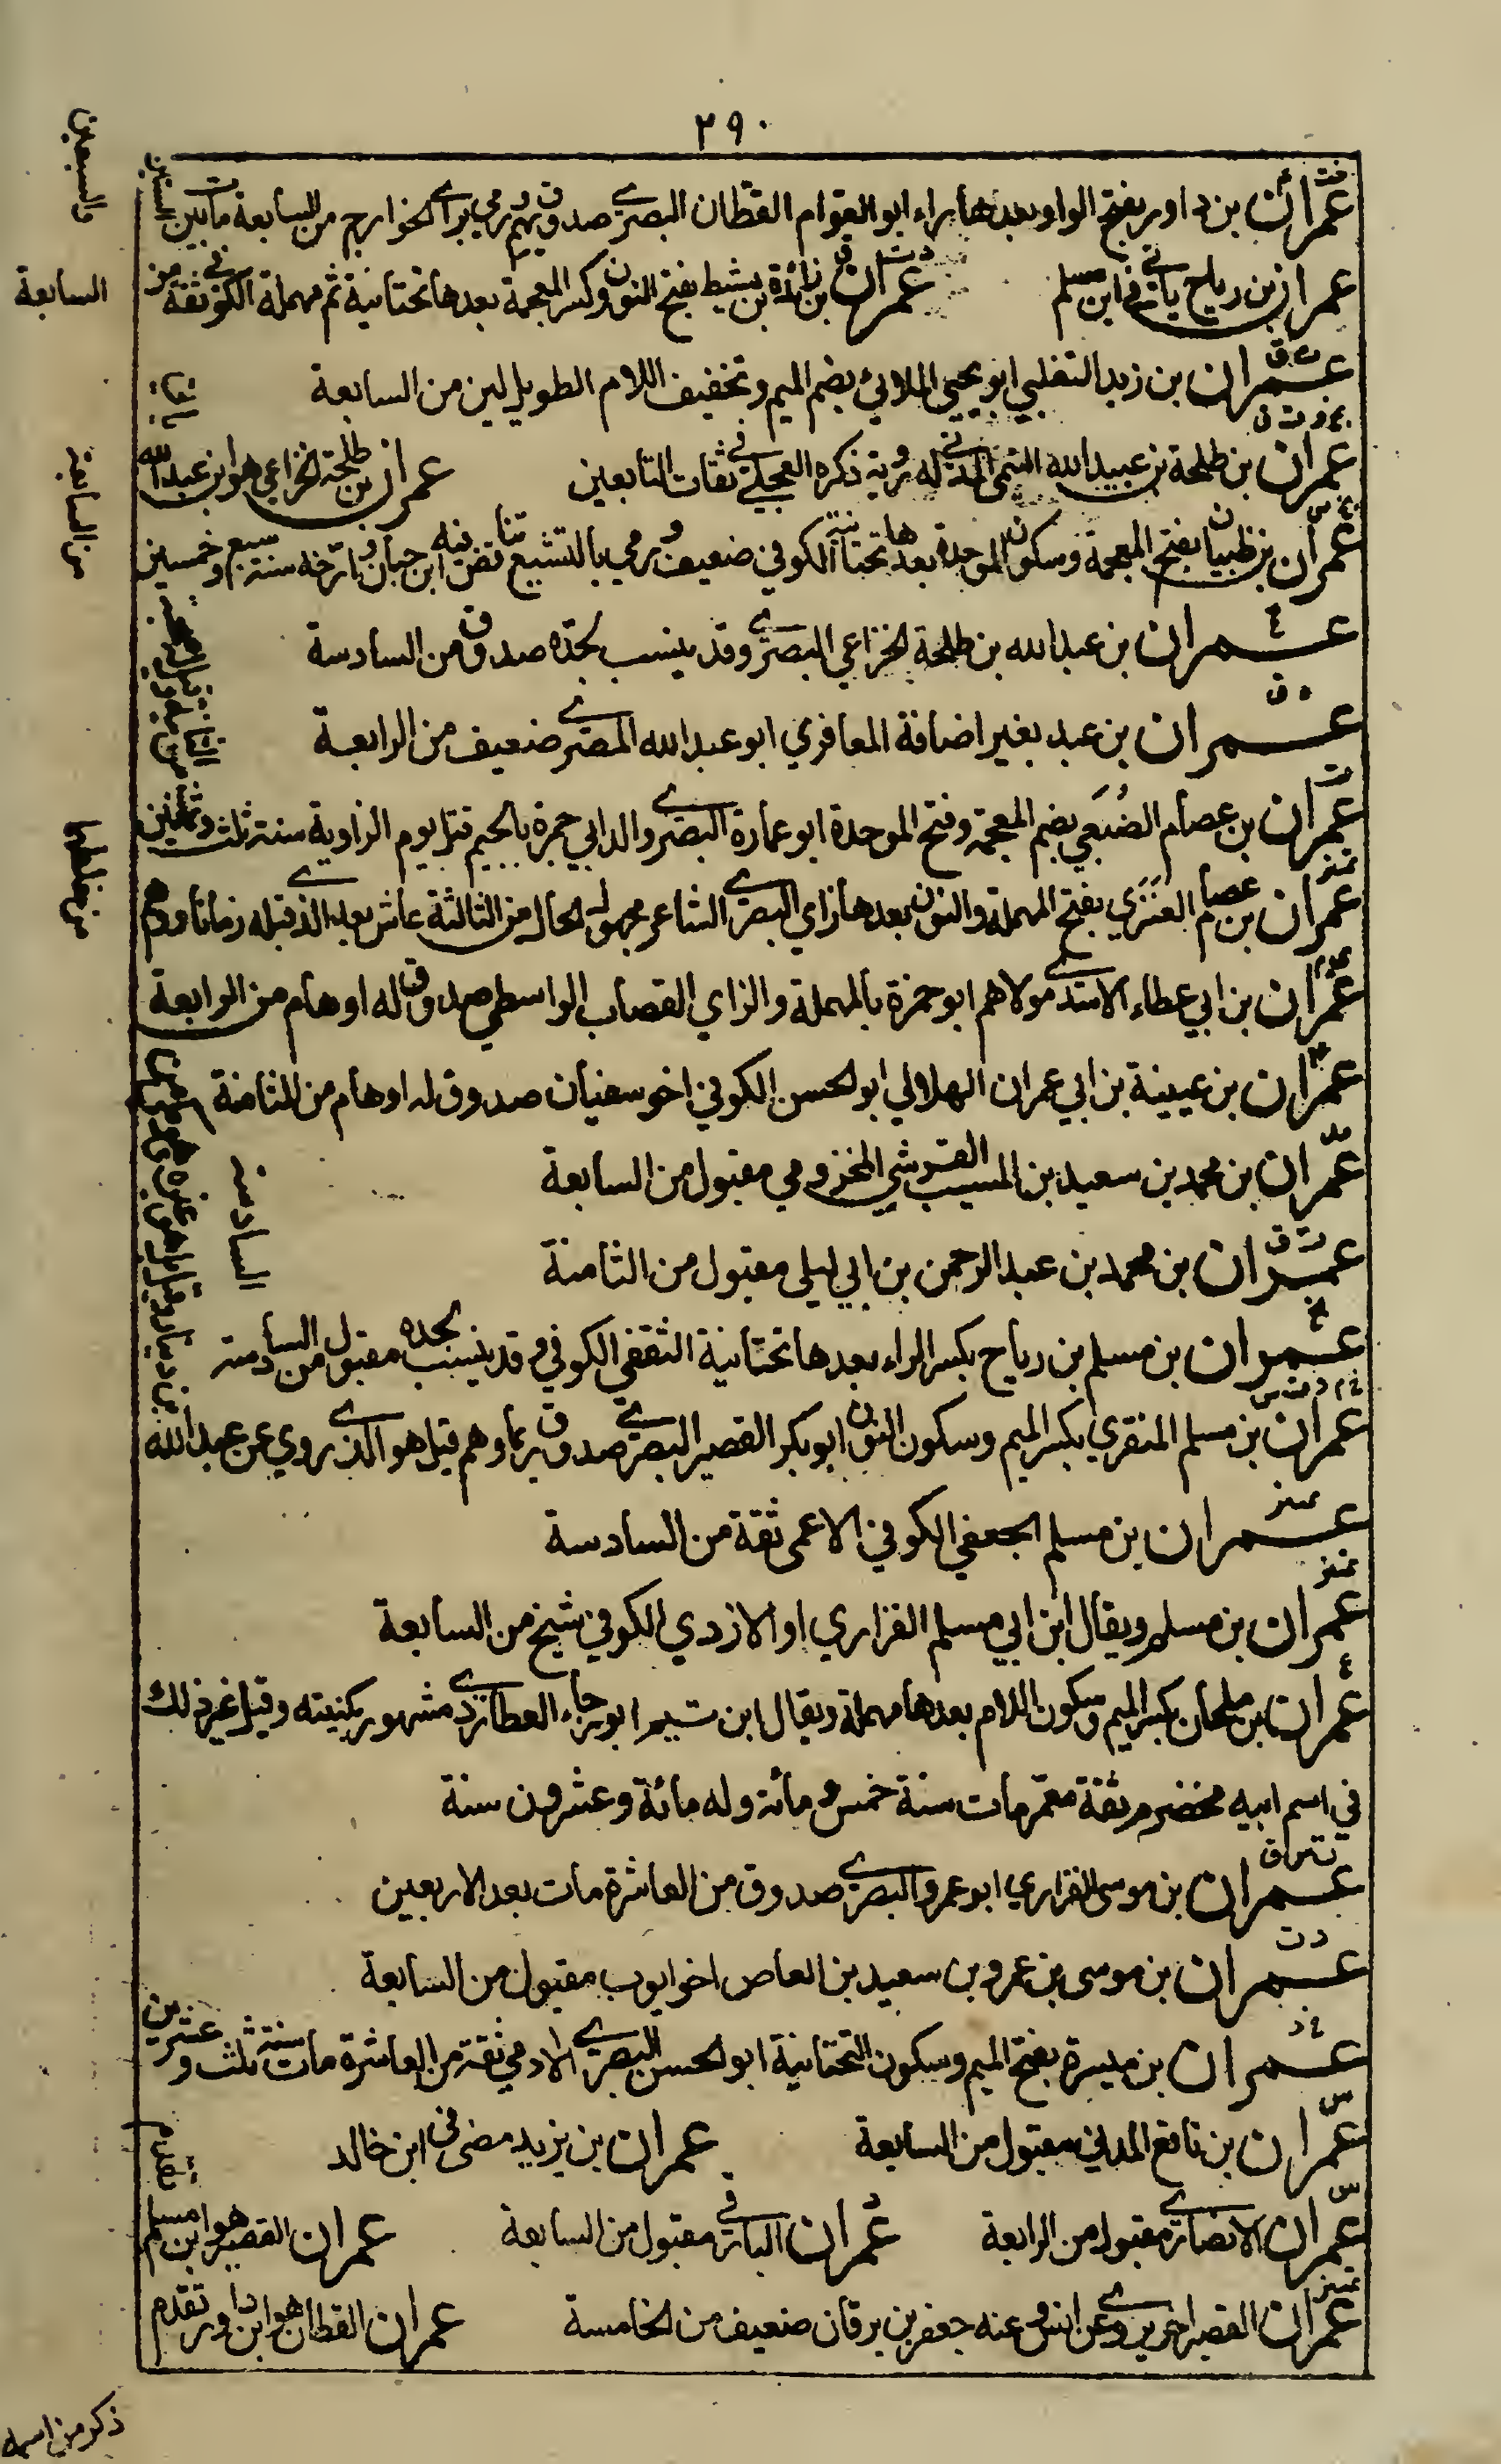 ٢٩٠
عمران بن داور بفتح الواو بعدها راء ابو العوام القطان البصري صدوق يهم ورمي براي الخوارج من السابعة مات بين الستين
والسبعين
عمران بن رياح ياتي في ابن مسلم
عمران بن زائدة بن نشيط بفتح النون وكسر المعجمة بعدها تحتانية ثم مهملة الكوفي ثقة من
السابعة
عمران بن زيد التغلبي ابو يحيى الملائي بضم الميم وتخفيف اللام الطويل لين من السابعة
عمران بن طلحة بن عبيد الله التيمي المدني له روية ذكره العجلي في ثقات التابعين
عمران بن طلحة الخزاعي هو ابن عبد الله
ياتي
عمران بن ظبيان بفتح المعجمة وسكون الموحدة بعدها تحتانية الكوفي ضعيف ورمي بالتشيع تناقض فيه ابن حبان وارخه سنة سبع وخمسين
من السابعة
عمران بن عبد الله بن طلحة الخزاعي البصري وقد ينسب لجده صدوق من السادسة
عمران بن عبد بغير اضافة المعافري ابو عبد الله المصري ضعيف من الرابعة
عمران بن عصام الضبعي بضم المعجمة وفتح الموحدة ابو عمارة البصري والد ابي جمرة بالجيم قتل يوم الزاوية سنة ثلث وثمنين
عمران بن عصام العنزي بفتح المهملة والنون بعدها زاي البصري الشاعر مجهول الحال من الثالثة عاش بعد الذي قبله زمانا ووهم
من خلطهما
عمران بن ابي عطاء الاسدي مولاهم ابو حمزة بالمهملة والزاي القصاب الواسطي صدوق له اوهام من الرابعة
عمران بن عيينة بن ابي عمران الهلالي ابو الحسن الكوفي اخو سفيان صدوق له اوهام من الثامنة
عمران بن محمد بن سعيد بن المسيب القرشي المخزومي مقبول من السابعة
عمران بن محمد بن عبد الرحمن بن ابي ليلى مقبول من الثامنة
عمران بن مسلم بن رياح بكسر الراء بعدها تحتانية الثقفي الكوفي وقد ينسب لجده مقبول من السادسة
عمران بن مسلم المنقري بكسر الميم وسكون النون ابو بكر القصير البصري صدوق ربما وهم قيل هو الذي روي عن عبد الله
بن دينار وقيل بل هو غيره وهو مكي من
السادسة
عمران بن مسلم الجعفي الكوفي الاعمى ثقة من السادسة
عمران بن مسلم ويقال ابن ابي مسلم الفزاري او الازدي الكوفي شيخ من السابعة
عمران بن ملحان بكسر الميم وسكون اللام بعدها مهملة ويقال ابن تيم ابو رجاء العطاردي مشهور بكنيته وقيل غير ذلك
في اسم ابيه مخضرم ثقة معمر مات سنة خمس ومائة وله مائة وعشرون سنة
عمران بن موسى القزاري ابو عمرو البصري صدوق من العاشرة مات بعد الاربعين
عمران بن موسى بن عمرو بن سعيد بن العاص اخو ايوب مقبول من السابعة
عمران بن ميسرة بفتح الميم وسكون التحتانية ابو الحسن البصري الادمي ثقة من العاشرة مات سنة ثلث وعشرين
عمران بن نافع المدني مقبول من السابعة
عمران بن يزيد مضى في ابن خالد
عمران الانصاري مقبول من الرابعة
عمران البارقي مقبول من السابعة
عمران القصير هو ابن مسلم
تقدم
عمران القصير اخر يروي عن انس وعنه جعفر بن برقان ضعيف من الخامسة
عمران القطان هو ابن داور تقدم
ذكر من اسمه